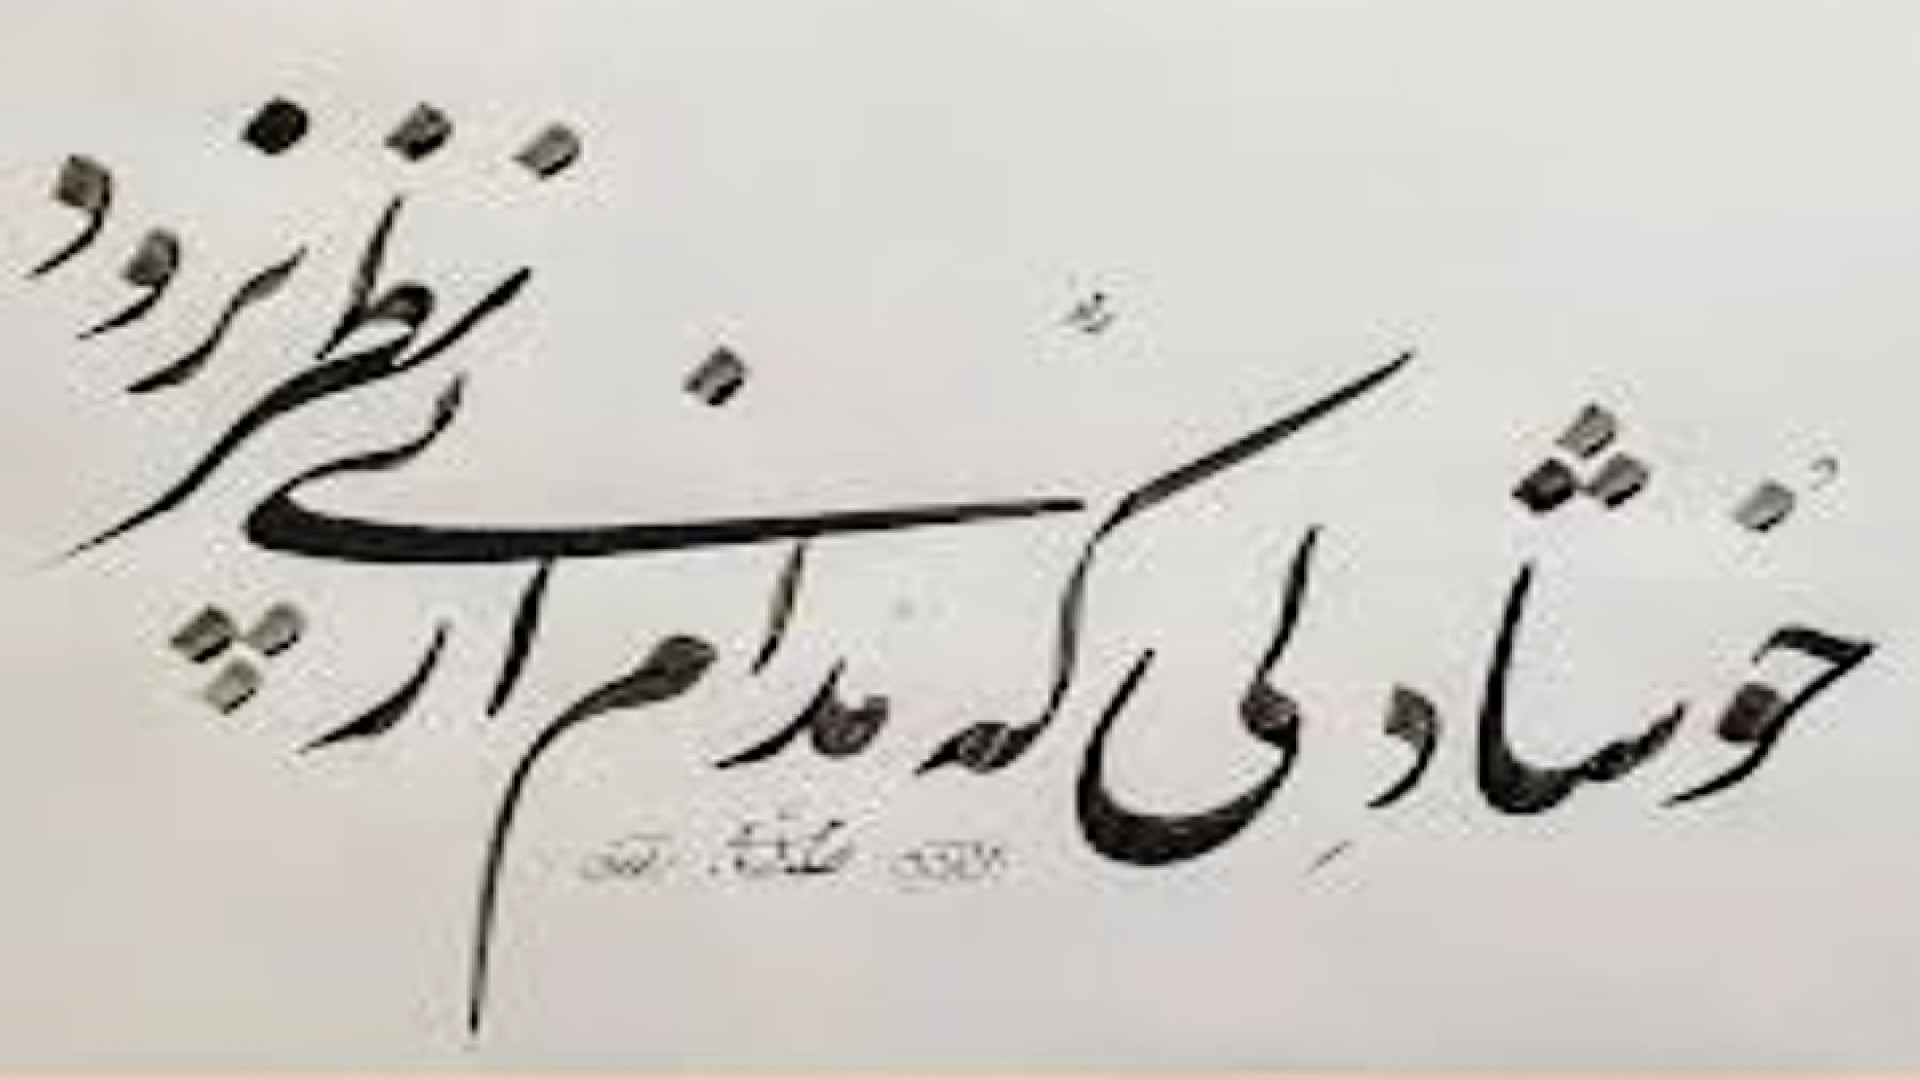 خوشا دلی که مدام از پی نظر نرود